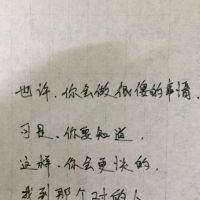 也许，你会做很傻的事情，
可是，你要知道，
这样，你会更快的，
找到那个对的人